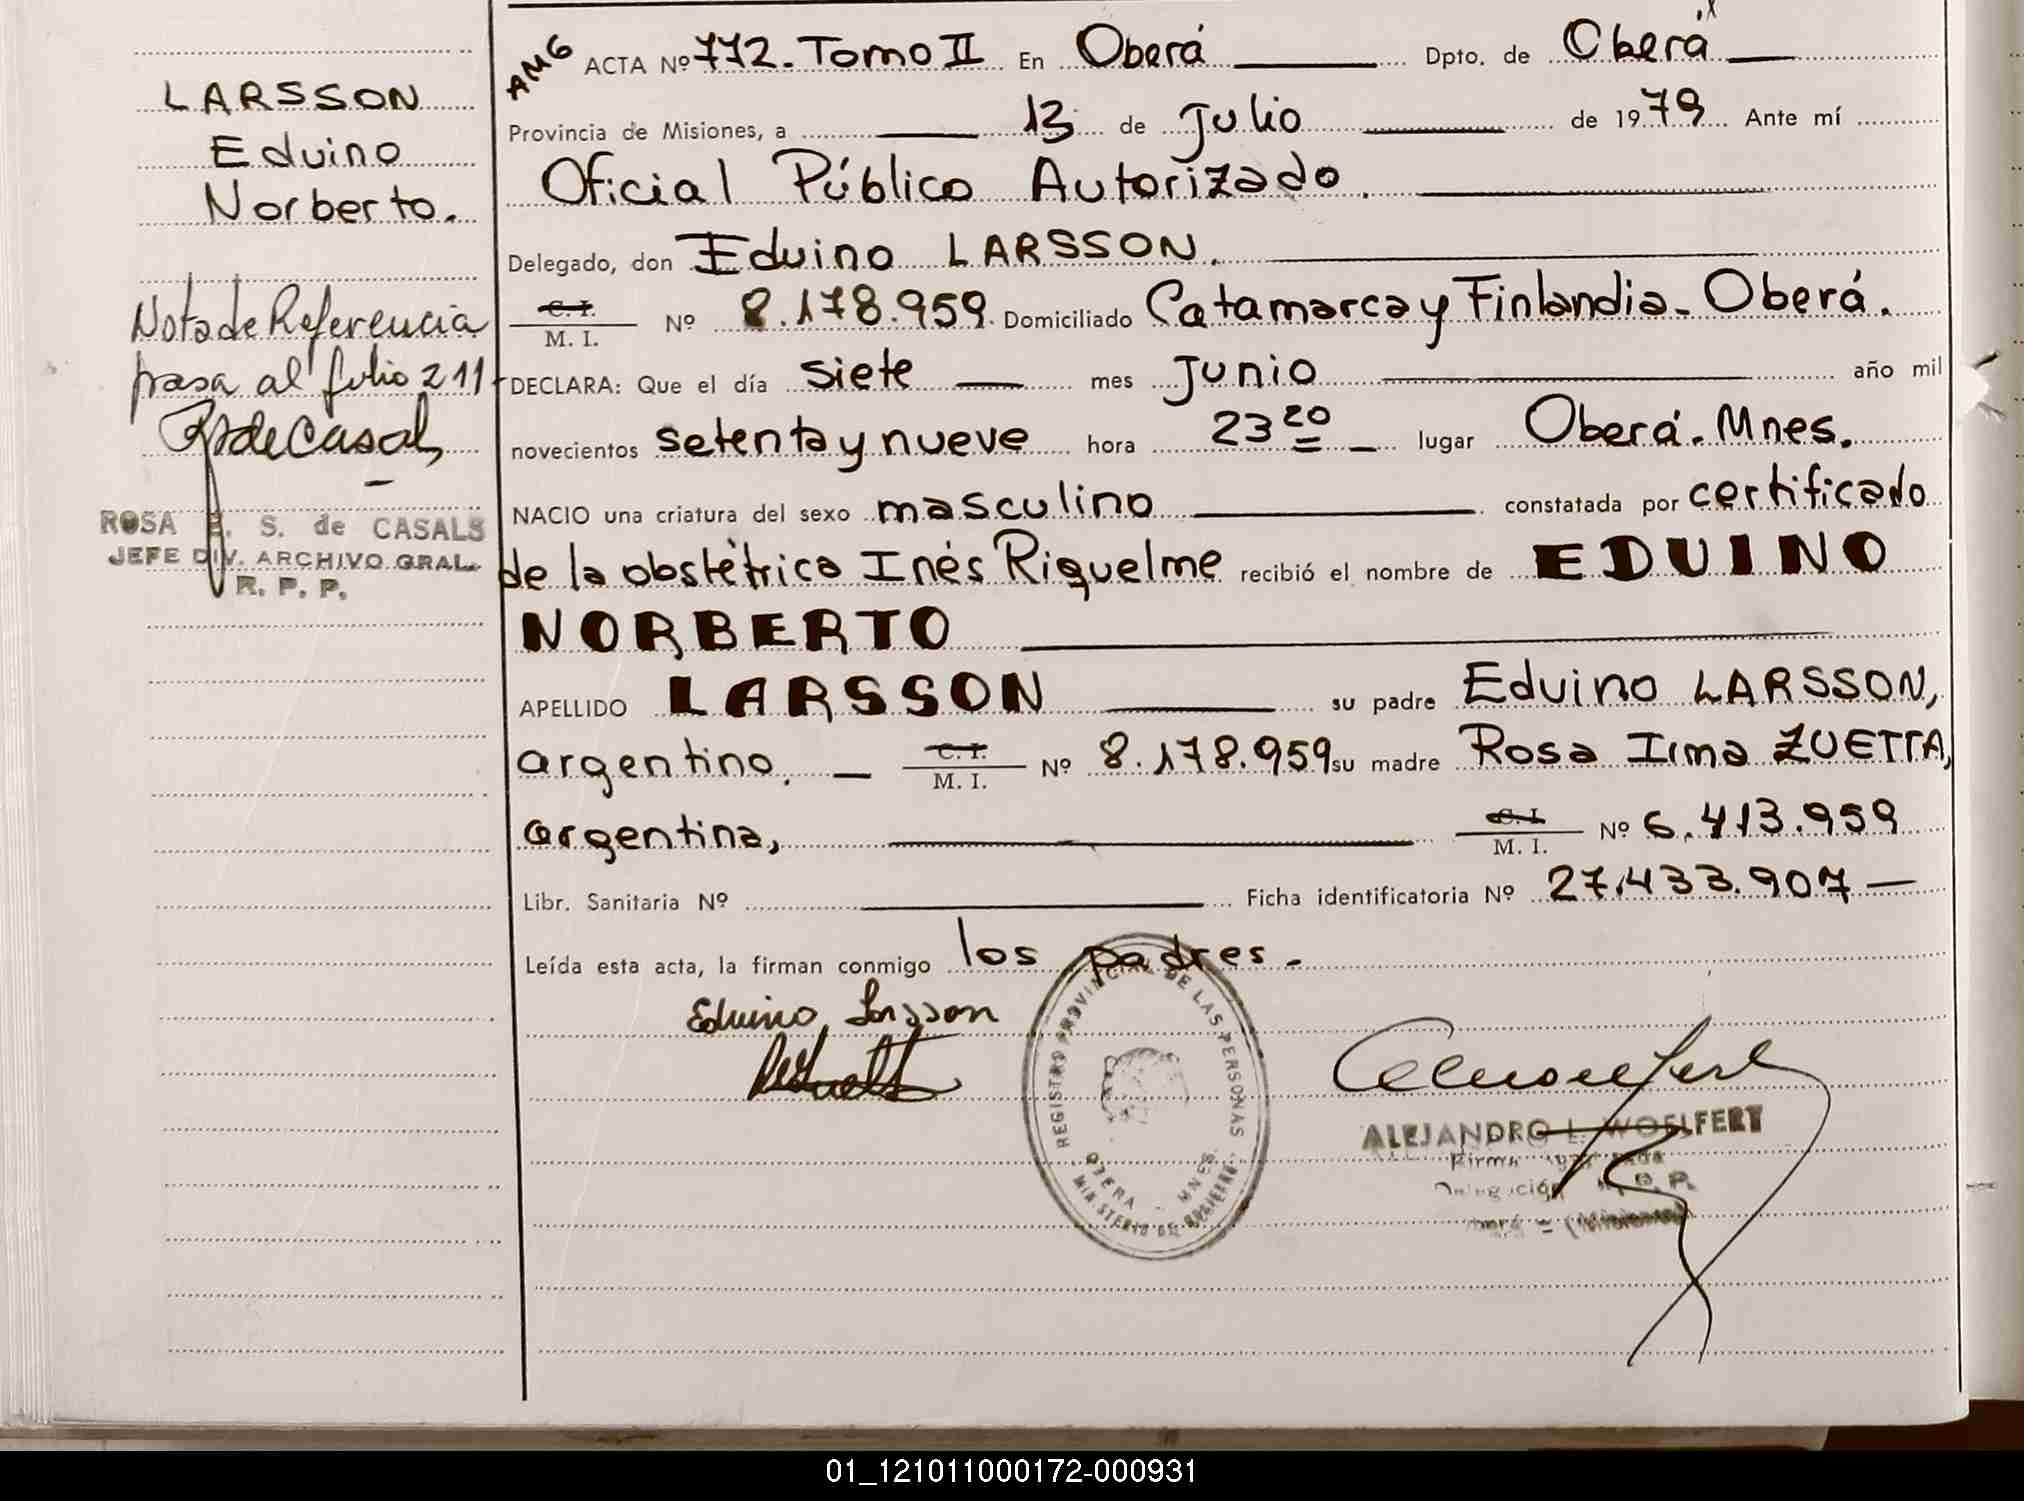 LARSSON
Eduino
Norberto.
Nota de Referencia
pasa al folio 211-
ROSA E. S. de CASALS
JEFE DIV. ARCHIVO GRAL.
R. P. P.
AMG
ACTA Nº 772. Tomo II En Oberá Dpto. de Oberá
Provincia de Misiones, a 13 de Julio de 1979 Ante mí
Oficial Público Autorizado.
Delegado, don Eduino LARSSON.
C. I.
M. I. Nº 8.178.959. Domiciliado Catamarca y Finlandia - Oberá.
DECLARA: Que el día siete mes Junio año mil
novecientos setenta y nueve hora 23 20 lugar Oberá. Mnes.
NACIO una criatura del sexo masculino constatada por certificado
de la obstétrica Inés Riquelme recibió el nombre de EDUINO
NORBERTO
APELLIDO LARSSON su padre Eduino LARSSON,
argentino. C. I. M. I. Nº 8.178.959 su madre Rosa Irma ZUETTA,
argentina, C. I. M. I. Nº 6.413.959
Libr. Sanitaria Nº Ficha identificatoria Nº 27.433.907
Leída esta acta, la firman conmigo los padres.
Eduino Larsson
REGISTRO PROVINCIAL DE LAS PERSONAS
OBERA - MNES.
MINISTERIO DE GOBIERNO
ALEJANDRO L. WOELFERT
01_121011000172-000931